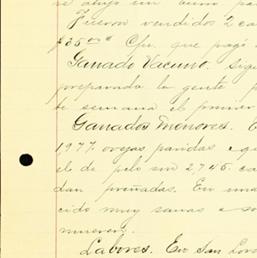 se dejo un buen pa
Fueron vendidos 2 ca
$35.00 c/u, que pagó
Ganado Vacuno. Sigu
preparada la gente p
te semana el primer
Ganados Menores. E
1977 ovejas paridas e que
el de pelo son 2746 ca
dan preñadas. En una
cido muy sanas e so
mueren.
Labores. En San Lore